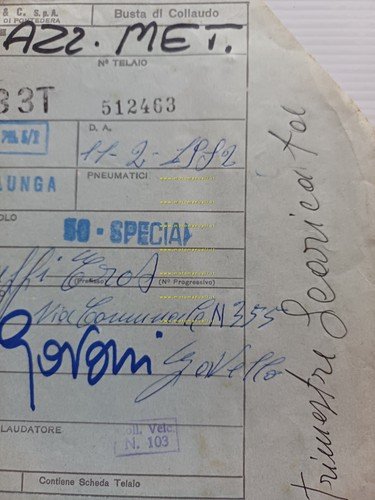 & C. S.p.A. Busta di Collaudo
DI PONTEDERA
AZZ. MET.
N° TELAIO
33T 512463
D. A.
11-2-1982
PNEUMATICI
LUNGA
OLO
50-SPECIAL
Eros
(Prefisso) (N° Progressivo)
Via Comunale N 355
Govoni
LAUDATORE
Coll. Velc.
N. 103
Contiene Scheda Telaio
Trimestre Scarica to